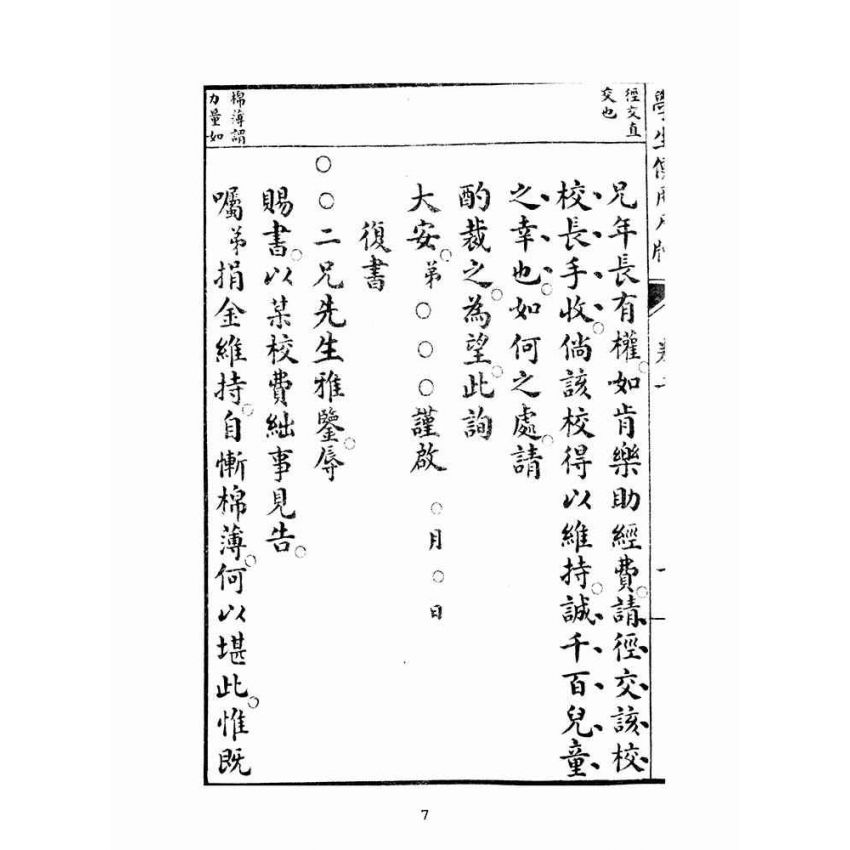 徑交直
交也
兄年長有權。如肯樂助經費。請徑交該校
校長手收。倘該校得以維持。誠千百兒童
之幸也。如何之處。請
酌裁之。為望。此詢
大安。弟○○○謹啟 ○月○日
復書
○○二兄先生雅鑒。辱
賜書。以某校費絀事見告。
囑弟捐金維持。自慚棉薄。何以堪此。惟既
棉薄謂
力量如
7